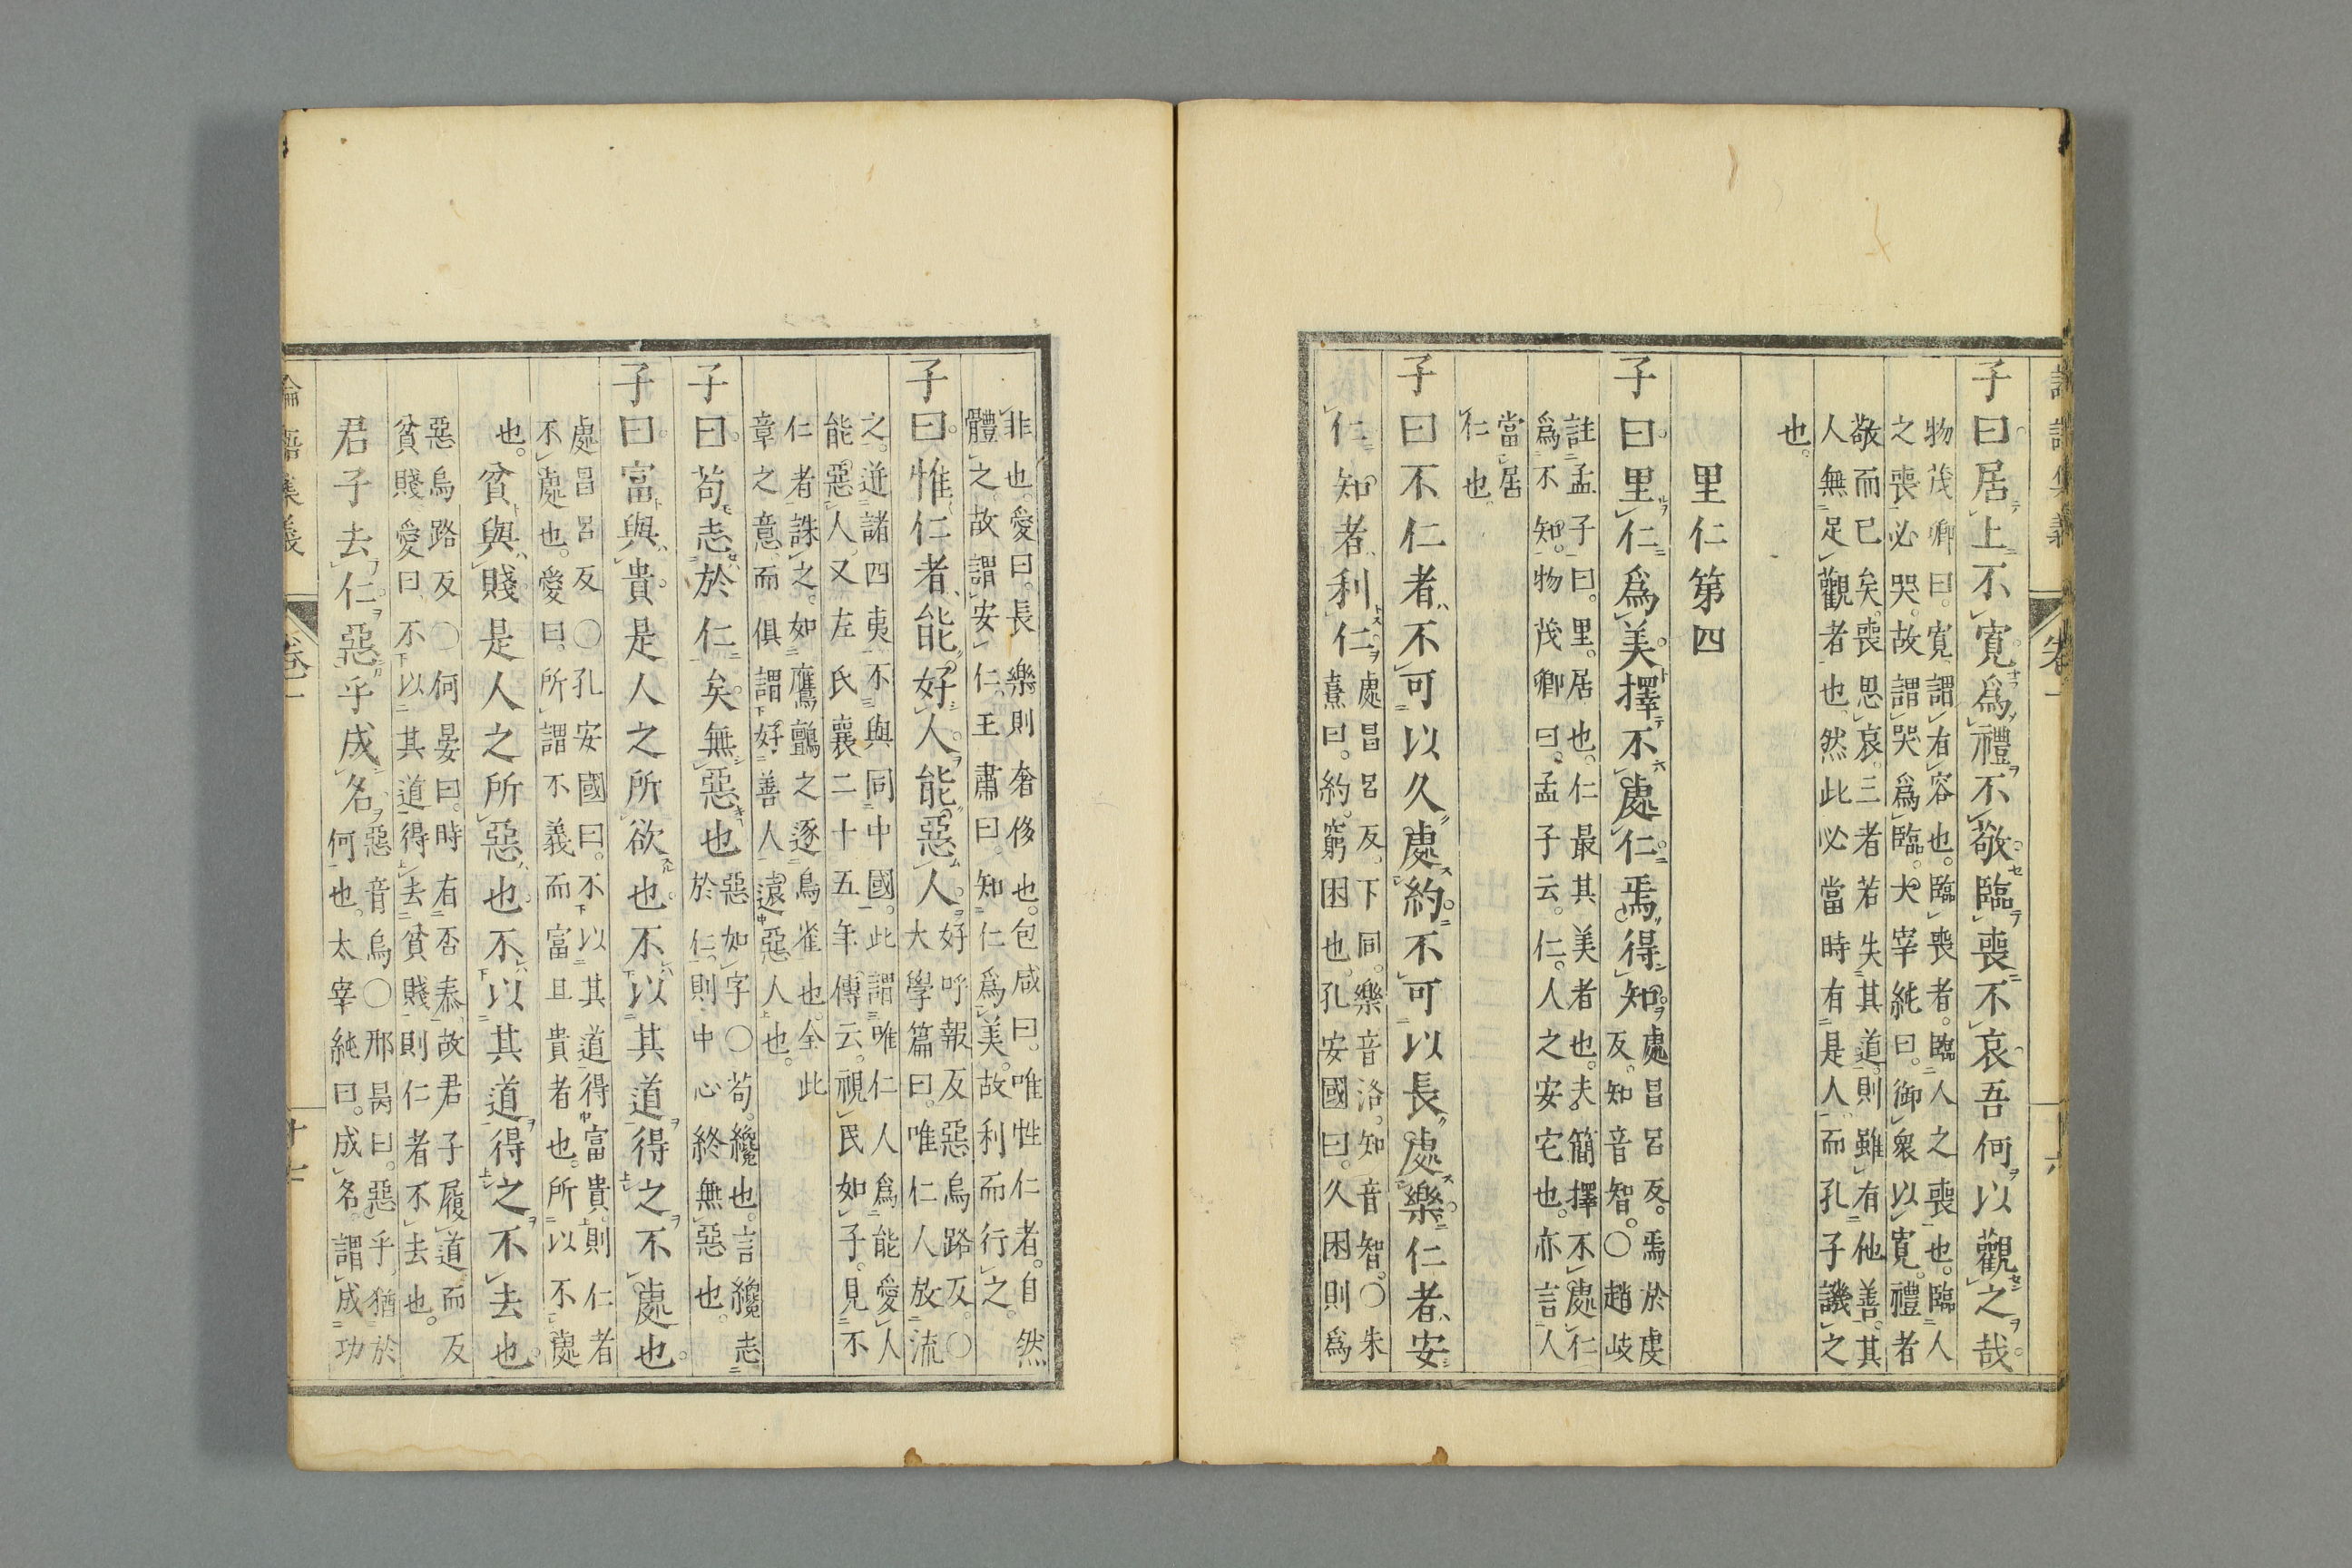 子曰居上不寬爲禮不敬臨喪不哀吾何以觀之哉
物茂卿曰寬謂有容也臨喪者臨人之喪也臨人
之喪必哭故謂哭爲臨大宰純曰御衆以寬禮者
敬而已矣喪思哀三者若失其道則雖有他善其
人無足觀者也然此必當時有是人而孔子譏之
也
里仁第四
子曰里仁爲美擇不處仁焉得知
處昌呂反焉於虔
反知音智○趙岐
註孟子曰里居也仁最其美者也夫簡擇不處仁
爲不知物茂卿曰孟子云仁人之安宅也亦言人
當居
仁也
子曰不仁者不可以久處約不可以長處樂仁者安
仁知者利仁
處昌呂反下同樂音洛知音智○朱
熹曰約窮困也孔安國曰久困則爲
非也愛曰長樂則奢侈也包咸曰唯性仁者自然
體之故謂安仁王肅曰知仁爲美故利而行之
子曰惟仁者能好人能惡人
好呼報反惡烏路反○
大學篇曰唯仁人放流
之迸諸四夷不與同中國此謂唯仁人爲能愛人
能惡人又左氏襄二十五年傳云視民如子見不
仁者誅之如鷹鸇之逐鳥雀也全此
章之意而俱謂好善人遠惡人也
子曰苟志於仁矣無惡也
惡如字○苟纔也言纔志
於仁則中心終無惡也
子曰富與貴是人之所欲也不以其道得之不處也
處昌呂反○孔安國曰不以其道得富貴則仁者
不處也愛曰所謂不義而富且貴者也所以不處
也
貧與賤是人之所惡也不以其道得之不去也
惡烏路反○何晏曰時有否泰故君子履道而反
貧賤愛曰不以其道得去貧賤則仁者不去也
君子去仁惡乎成名
惡音烏○邢昺曰惡乎猶於
何也太宰純曰成名謂成功
論語集義
卷一